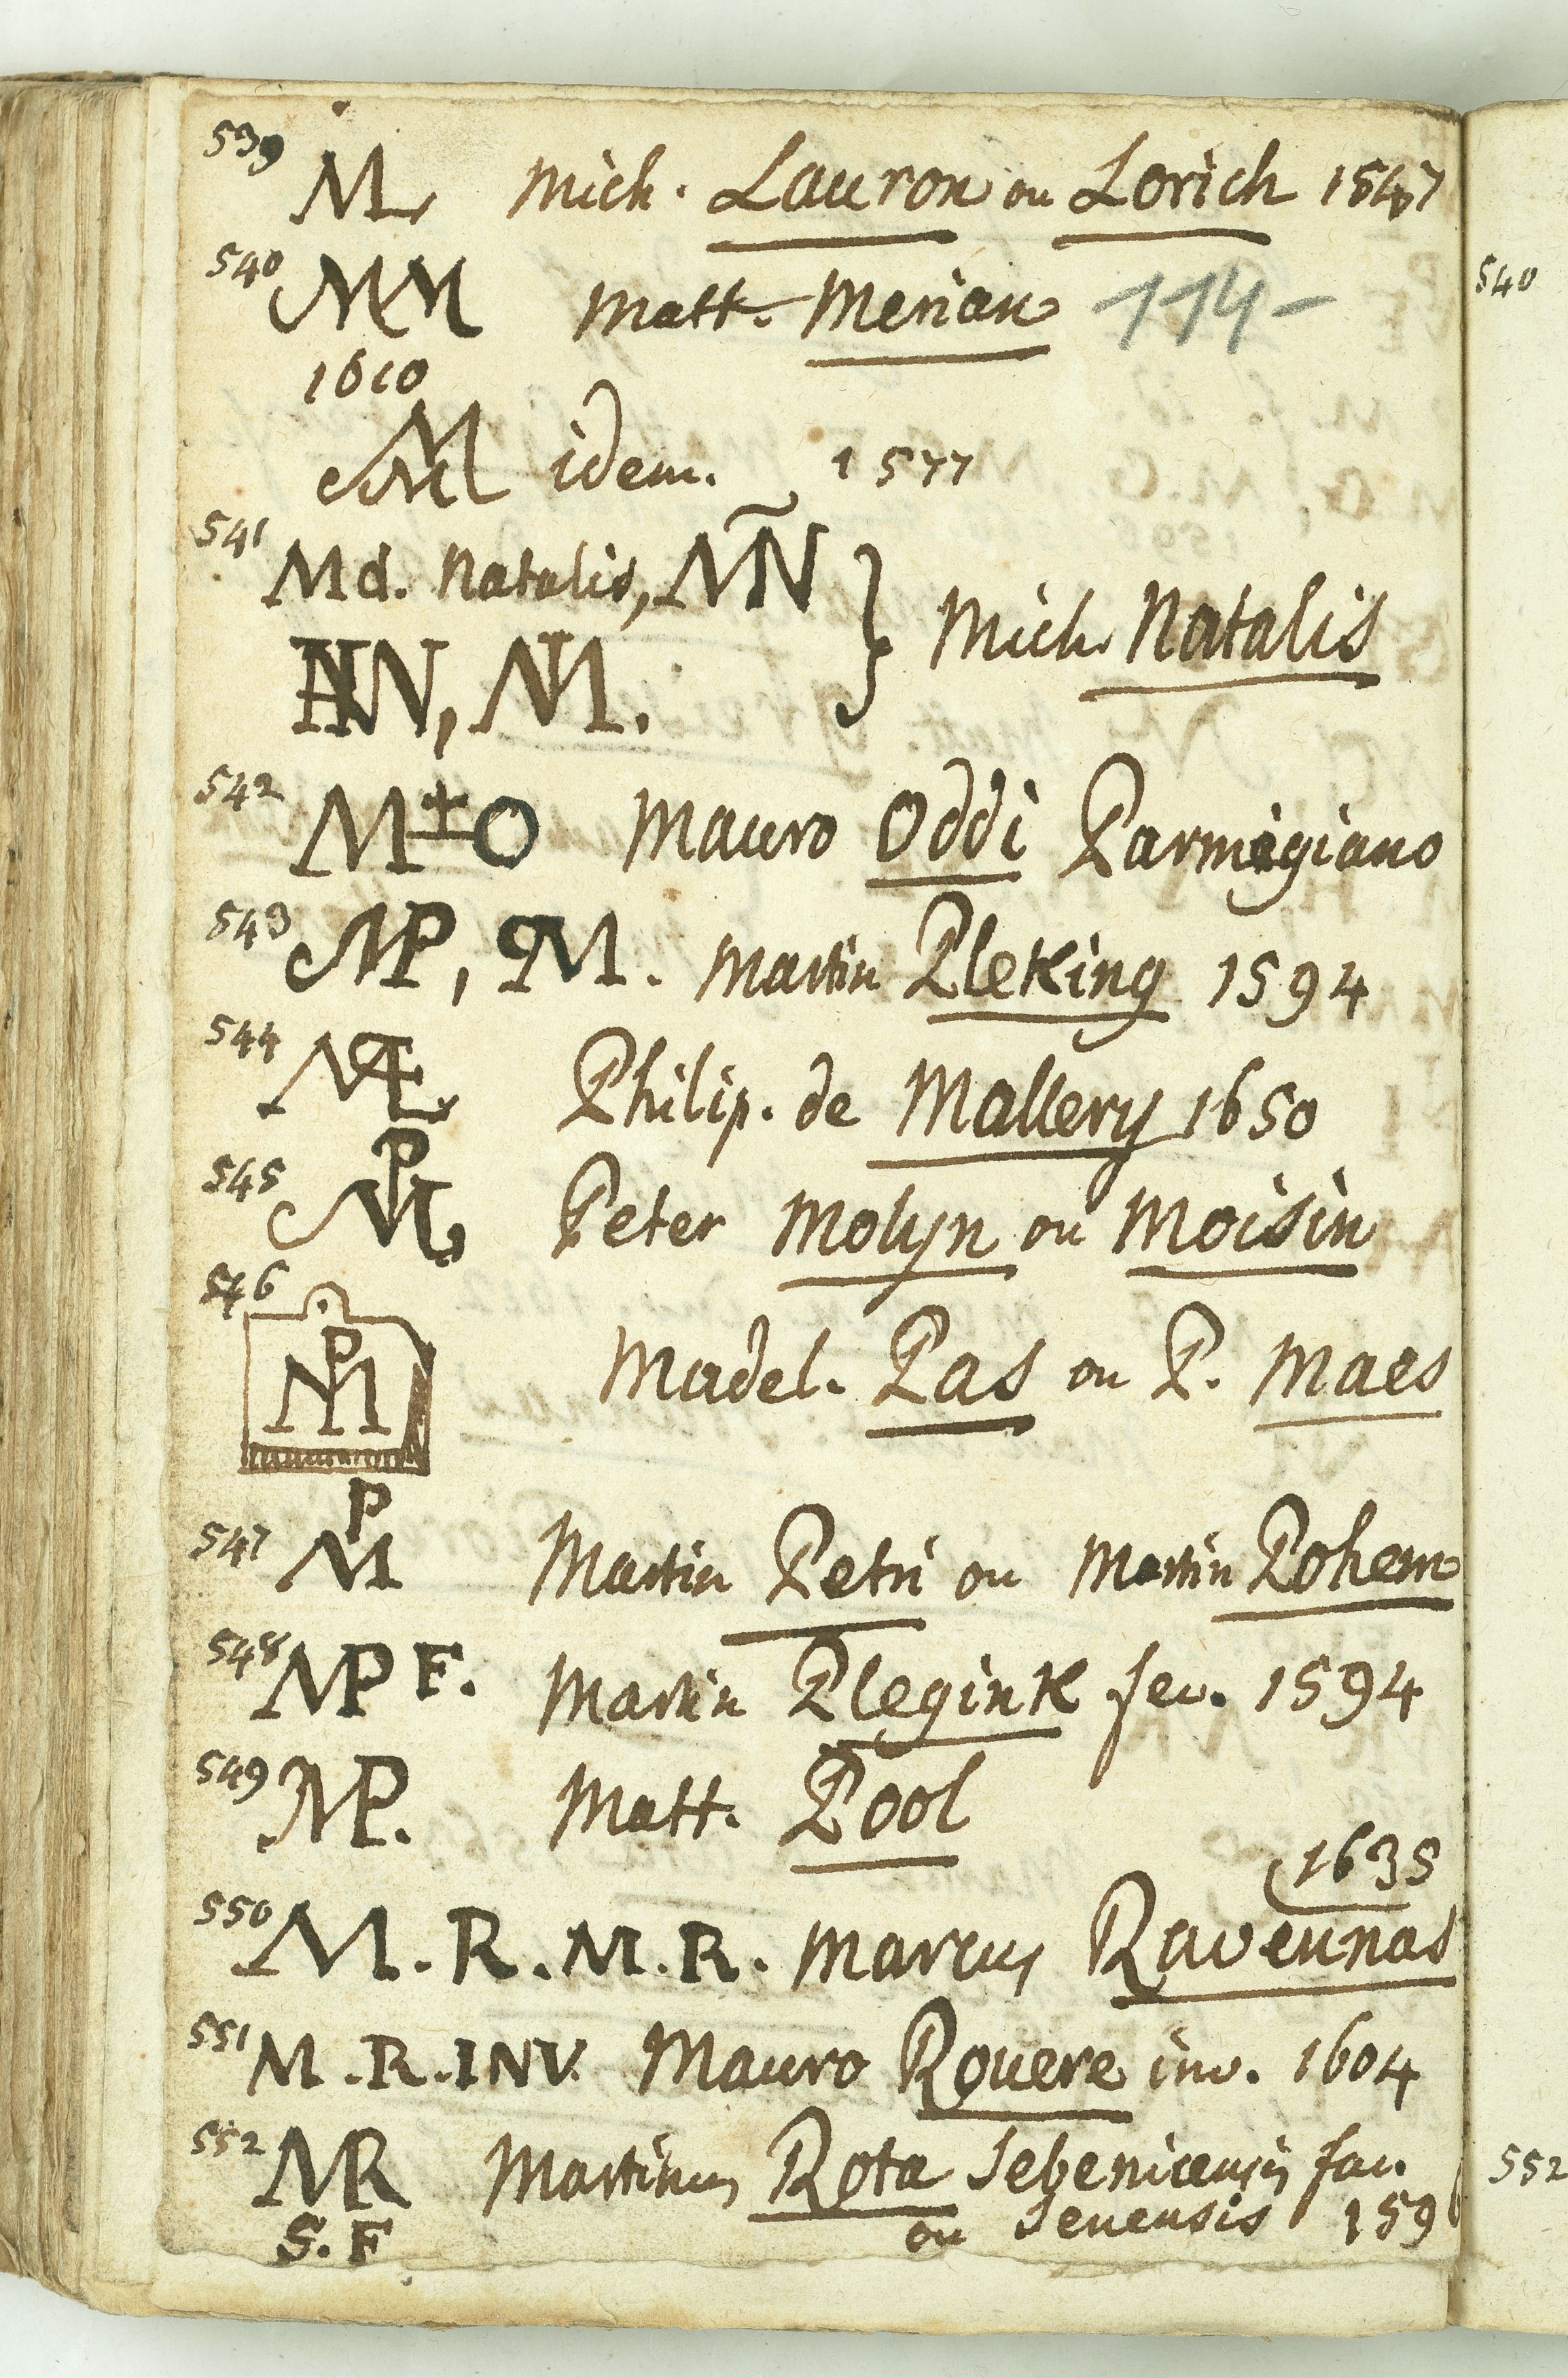 539 M Mich. Lauron ou Lorich 1547
540 MM Matt. Merian 114-
1610
M idem. 1577
541 Md. Natalis, MN
HN, NM. } Mich. Natalis
542 M+O Mauro Oddi Parmigiano
543 MP, PM. Martin Pleking 1594
544 Philip. de Mallery 1650
545 PM Peter Molyn ou Moisin
546 PM Madel. Pas ou P. Maes
547 PM Martin Petri ou Martin Pohem
548 MP F. Martin Plegink fec. 1594
549 MP. Matt. Pool
1635
550 M.R.M.R. Marcus Ravennas
551 M.R.INV. Mauro Rouere inv. 1604
552 MR Martinus Rota Sebenicensis fac.
S.F ou Senensis 159
540
552